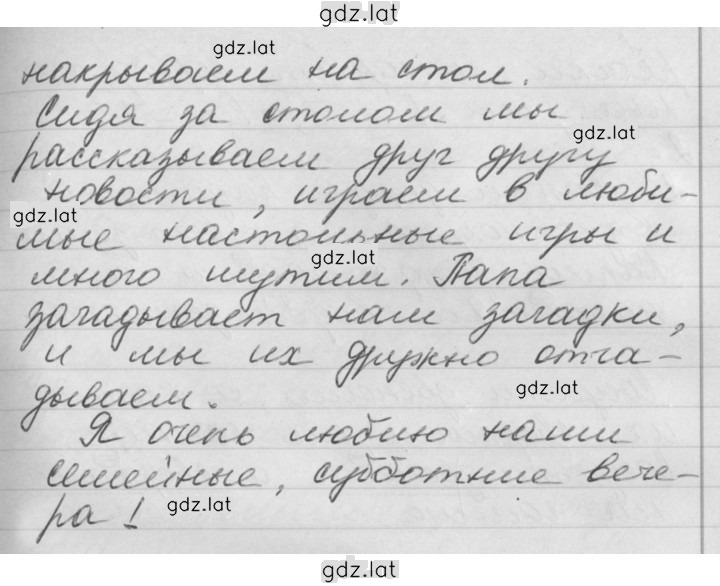 gdz.lat
gdz.lat
накрываем на стол.
Сидя за столом мы
gdz.lat
рассказываем друг другу
новости, играем в люби-
gdz.lat
мые настольные игры и
gdz.lat
много шутим. Папа
загадывает нам загадки,
и мы их дружно отга-
дываем.
gdz.lat
Я очень люблю наши
семейные, субботние вече-
ра!
gdz.lat
gdz.lat